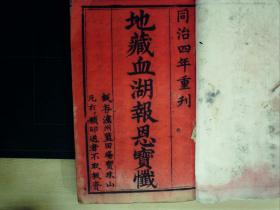 同治四年重刊
地藏血湖報恩寶懺
板存瀘州藍田場寶珠山
凡有願印送者不取板資